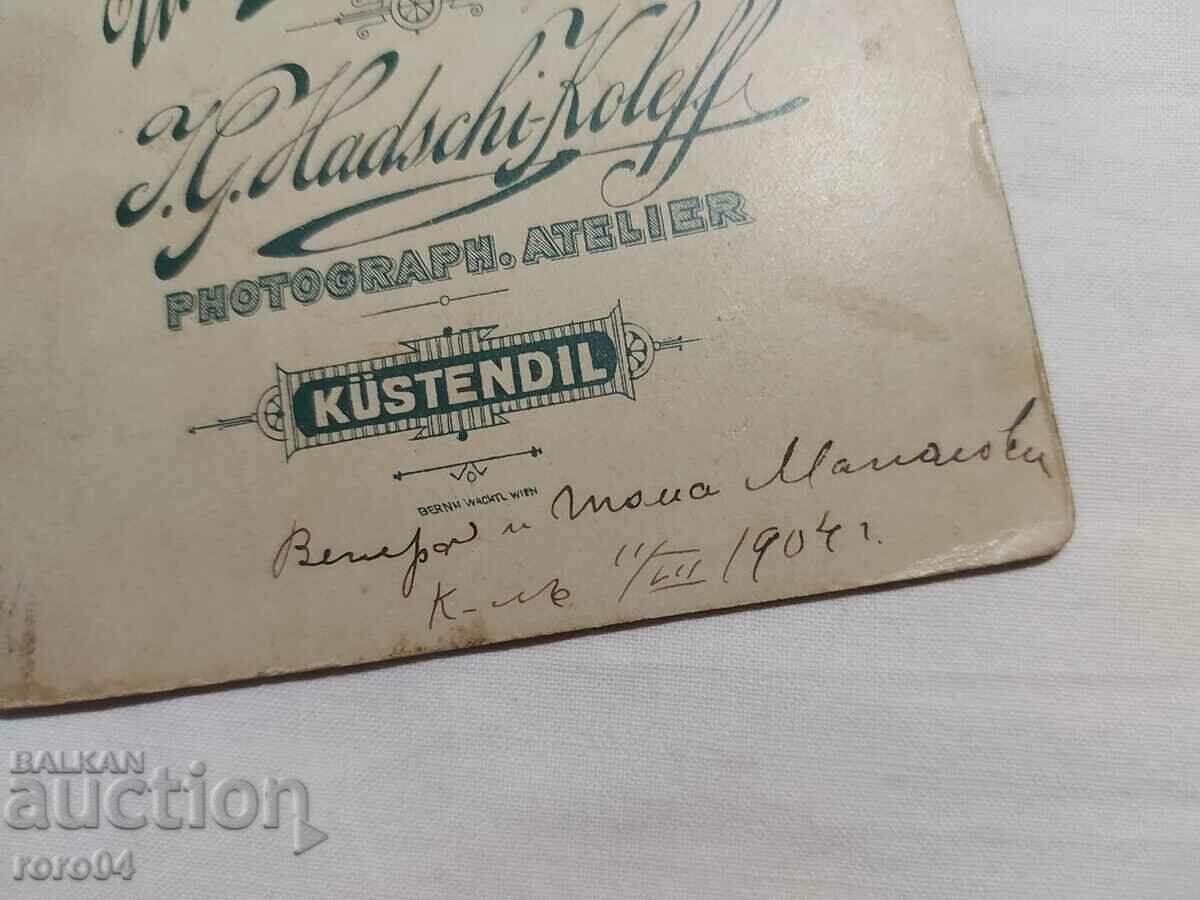 J.G. Hadschi-Koleff
PHOTOGRAPH. ATELIER
KÜSTENDIL
BERNH. WACHTL WIEN
и Тома
К-лъ 11/III 1904 г.
BALKAN
auction
roro04